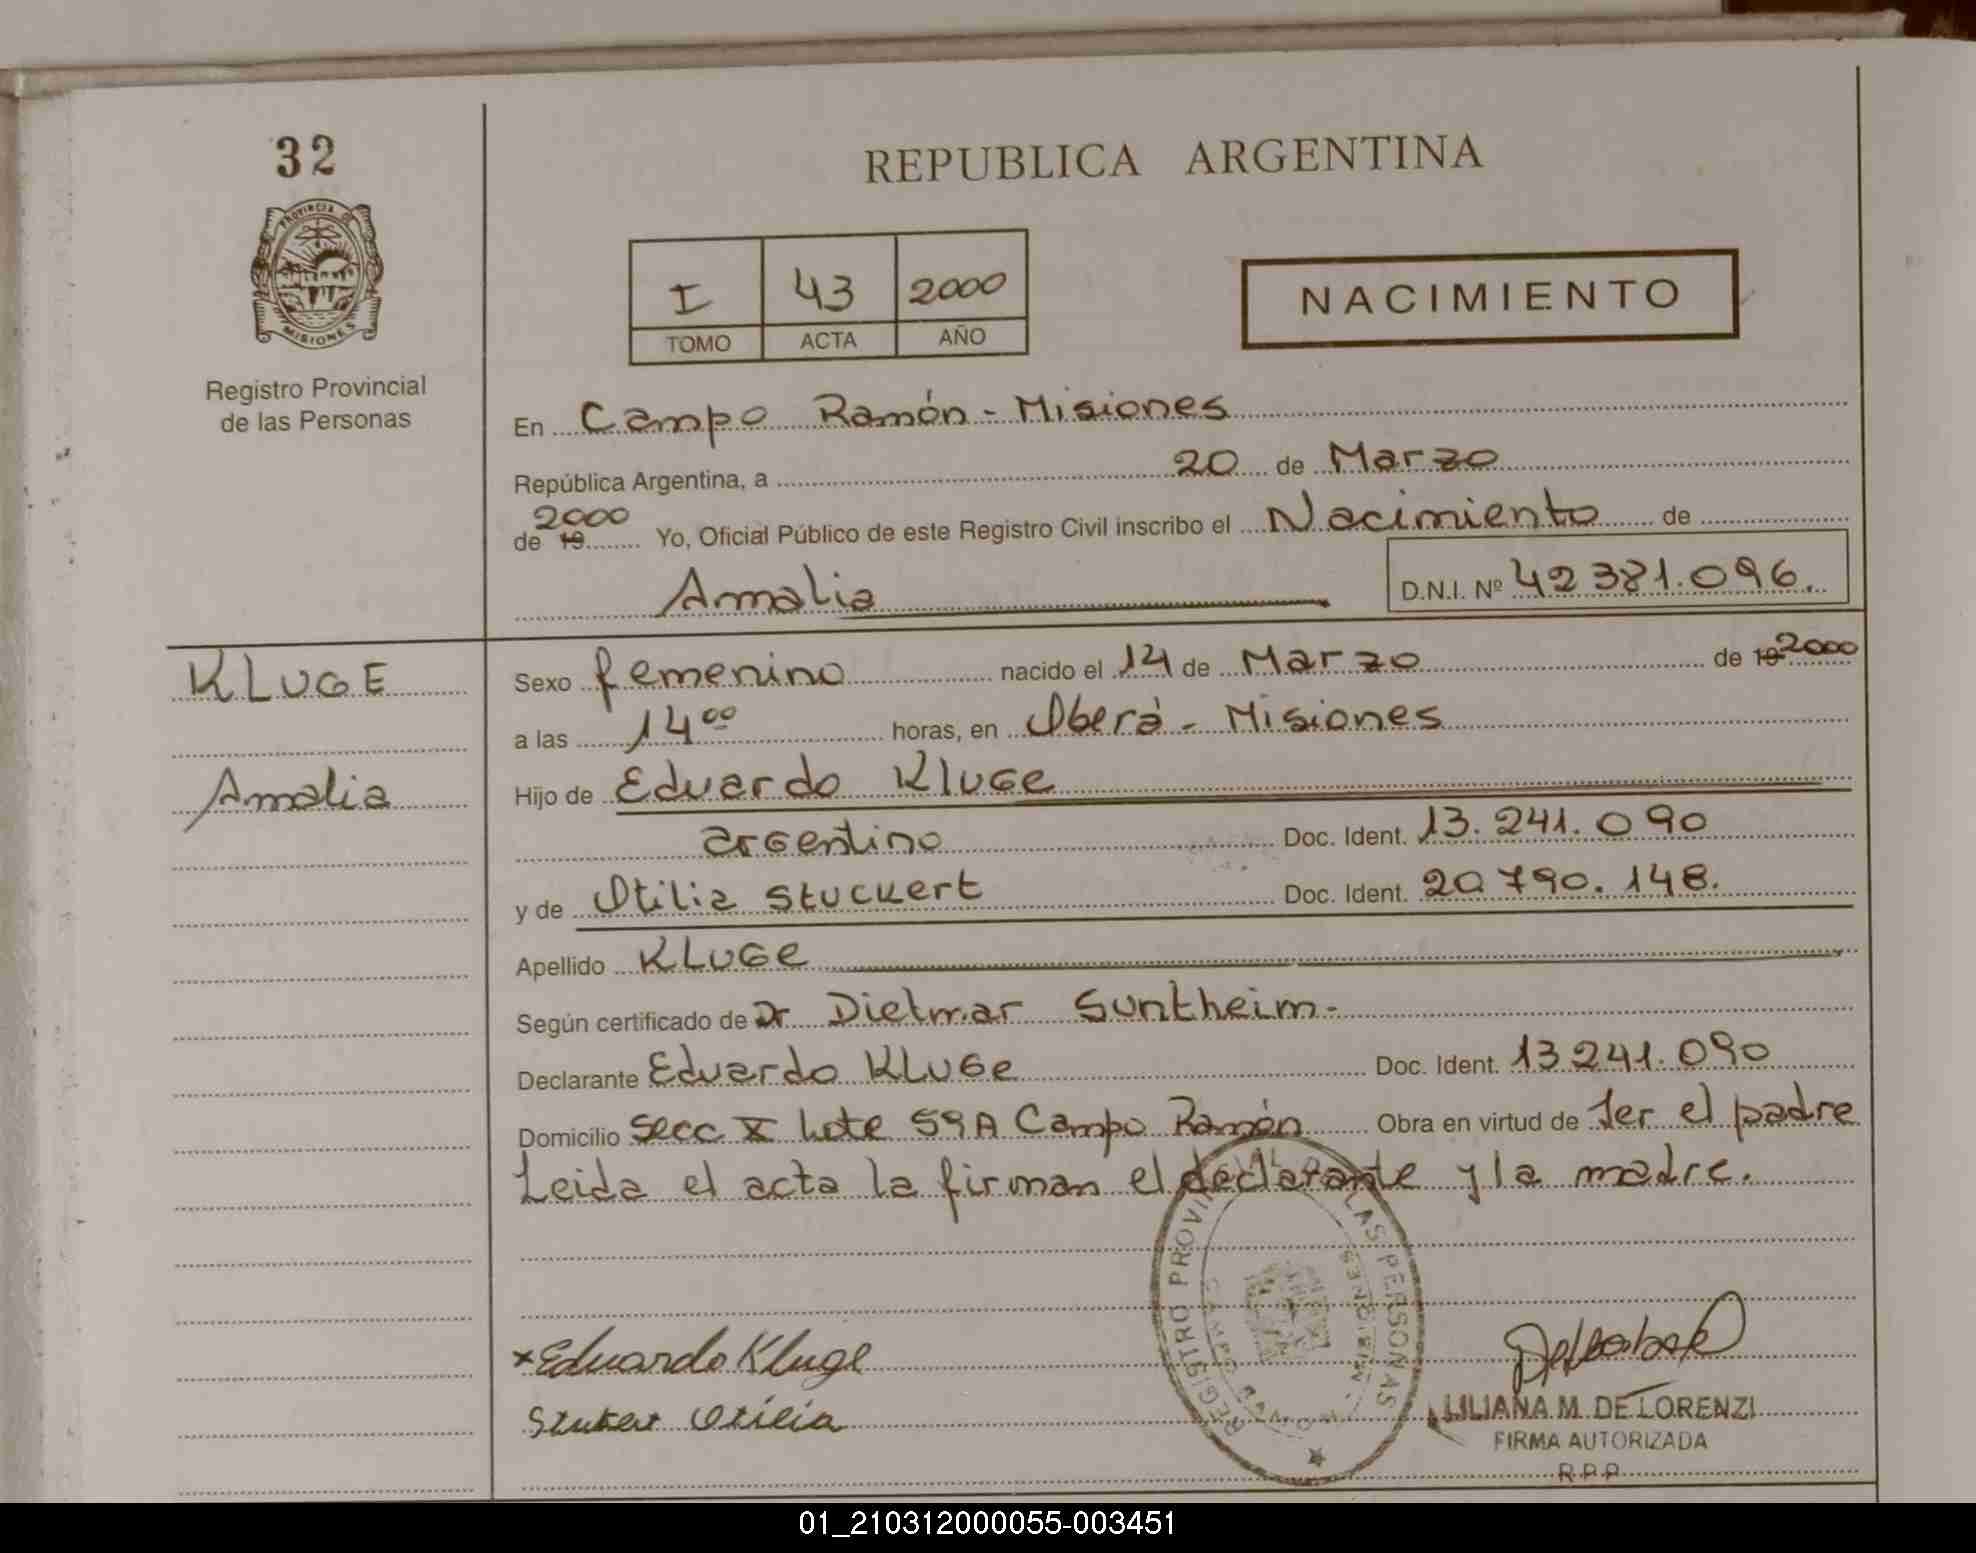 32
PROVINCIA DE
MISIONES
Registro Provincial
de las Personas
REPUBLICA ARGENTINA
I 43 2000
TOMO ACTA AÑO
NACIMIENTO
En Campo Ramón - Misiones
República Argentina, a 20 de Marzo
2000
de 19 Yo, Oficial Público de este Registro Civil inscribo el Nacimiento de
Amalia D.N.I. Nº 42381.096.
KLUGE
Amalia
Sexo femenino nacido el 14 de Marzo de 19 2000
a las 14 00 horas, en Oberá - Misiones
Hijo de Eduardo Kluge
argentino Doc. Ident. 13.241.090
y de Otilia Stuckert Doc. Ident. 20790.148.
Apellido KLUGe
Según certificado de Dr Dietmar Suntheim-
Declarante Eduardo KLUGe Doc. Ident. 13241.090
Domicilio Secc X Lote 59A Campo Ramón Obra en virtud de Ser el padre
Leida el acta la firman el declarante y la madre.
REGISTRO PROVIN LAS PERSONAS
CAMPO RAMON MISIONES
x Eduardo Kluge
Otilia
LILIANA M. DE LORENZI
FIRMA AUTORIZADA
R.P.P.
01_210312000055-003451